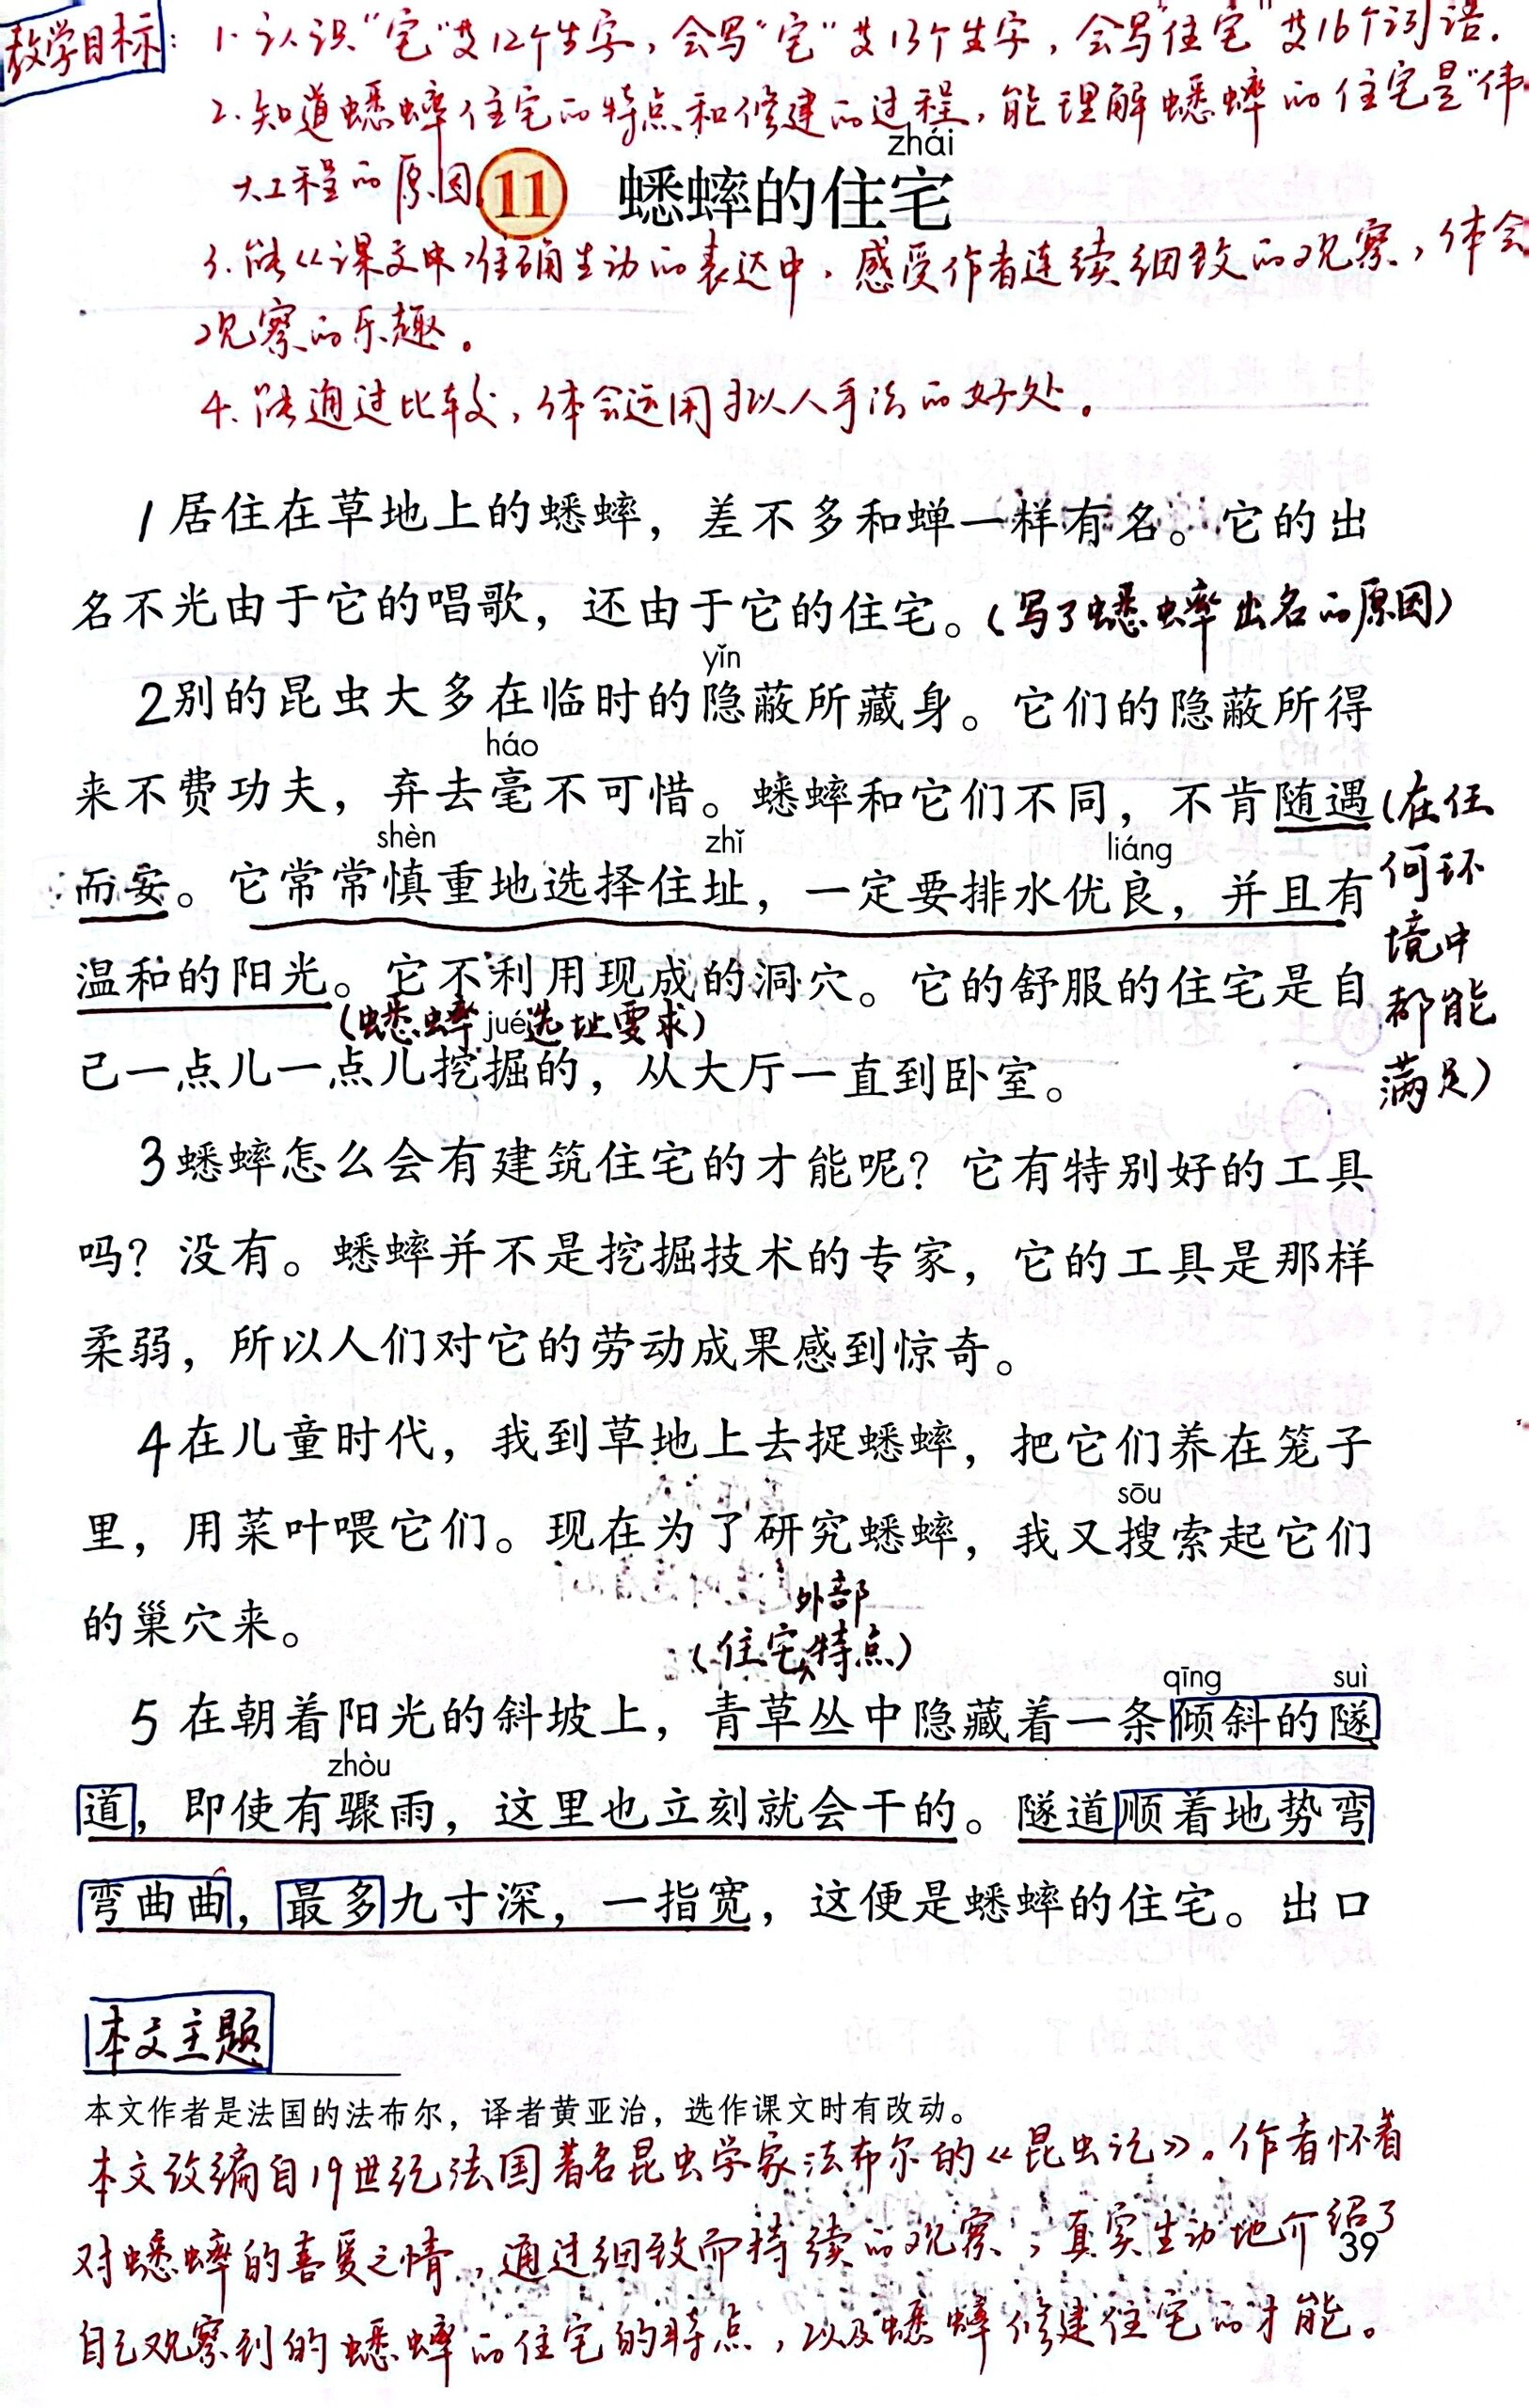 教学目标：1.认识“宅”等12个生字，会写“宅”等13个生字，会写“住宅”等16个词语.
2.知道蟋蟀住宅的特点和修建的过程，能理解蟋蟀的住宅是“伟
大工程的原因
zhái
11 蟋蟀的住宅
3.能从课文中准确生动的表达中，感受作者连续细致的观察，体会
观察的乐趣。
4.能通过比较，体会运用拟人手法的好处。
1居住在草地上的蟋蟀，差不多和蝉一样有名。它的出
名不光由于它的唱歌，还由于它的住宅。(写了蟋蟀出名的原因)
yǐn
2别的昆虫大多在临时的隐蔽所藏身。它们的隐蔽所得
háo
来不费功夫，弃去毫不可惜。蟋蟀和它们不同，不肯随遇(在任
shèn zhǐ liáng
而安。它常常慎重地选择住址，一定要排水优良，并且有 何环
境中
温和的阳光。它不利用现成的洞穴。它的舒服的住宅是自 都能
(蟋蟀选址要求)
jué
己一点儿一点儿挖掘的，从大厅一直到卧室。 满足)
3蟋蟀怎么会有建筑住宅的才能呢？它有特别好的工具
吗？没有。蟋蟀并不是挖掘技术的专家，它的工具是那样
柔弱，所以人们对它的劳动成果感到惊奇。
4在儿童时代，我到草地上去捉蟋蟀，把它们养在笼子
sōu
里，用菜叶喂它们。现在为了研究蟋蟀，我又搜索起它们
的巢穴来。
外部
(住宅特点)
qīng suì
5在朝着阳光的斜坡上，青草丛中隐藏着一条倾斜的隧
zhòu
道，即使有骤雨，这里也立刻就会干的。隧道顺着地势弯
弯曲曲，最多九寸深，一指宽，这便是蟋蟀的住宅。出口
本文主题
本文作者是法国的法布尔，译者黄亚治，选作课文时有改动。
本文改编自19世纪法国著名昆虫学家法布尔的《昆虫记》。作者怀着
对蟋蟀的喜爱之情，通过细致而持续的观察，真实生动地介绍了
39
自己观察到的蟋蟀的住宅的特点，以及蟋蟀修建住宅的才能。